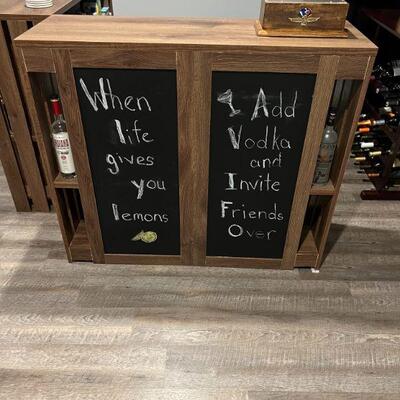 When
life
gives
you
lemons
Add
Vodka
and
Invite
Friends
Over